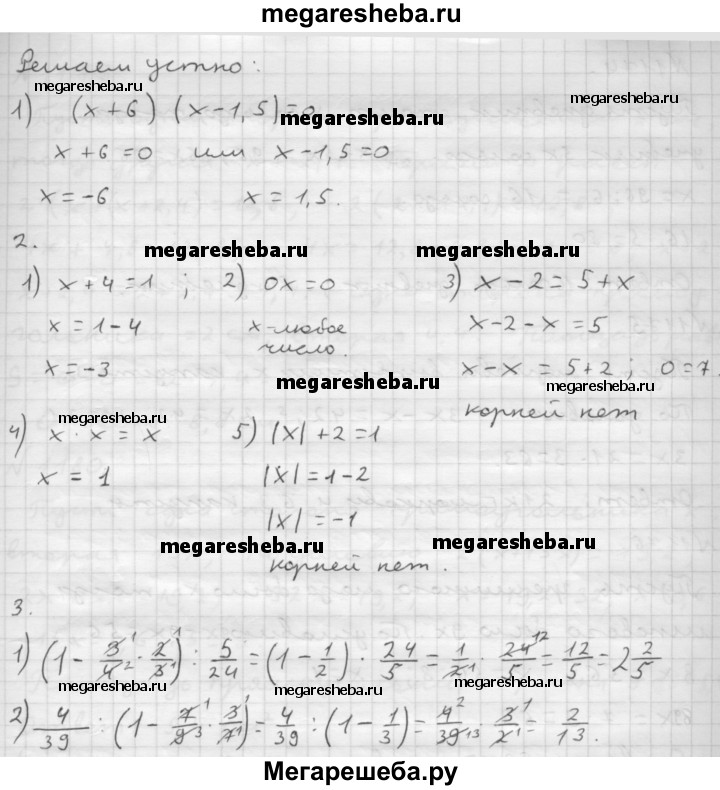 megaresheba.ru
Решаем устно:
megaresheba.ru megaresheba.ru
1) (x+6) (x-1,5)=0
megaresheba.ru
x+6=0 или x-1,5=0
x=-6 x=1,5.
2.
megaresheba.ru megaresheba.ru
1) x+4=1; 2) 0x=0 3) x-2=5+x
x=1-4 x-любое x-2-x=5
x=-3 число. x-x=5+2; 0=7.
megaresheba.ru megaresheba.ru
megaresheba.ru корней нет
4) x·x=x 5) |x|+2=1
x=1 |x|=1-2
|x|=-1
megaresheba.ru megaresheba.ru
корней нет.
3.
1) (1-3/4·2/3):5/24=(1-1/2)·24/5=1/2·24/5=12/5=2 2/5
megaresheba.ru megaresheba.ru megaresheba.ru
2) 4/39:(1-7/9·3/7)=4/39:(1-1/3)=4/39·3/2=2/13.
megaresheba.ru megaresheba.ru
Мегарешеба.ру